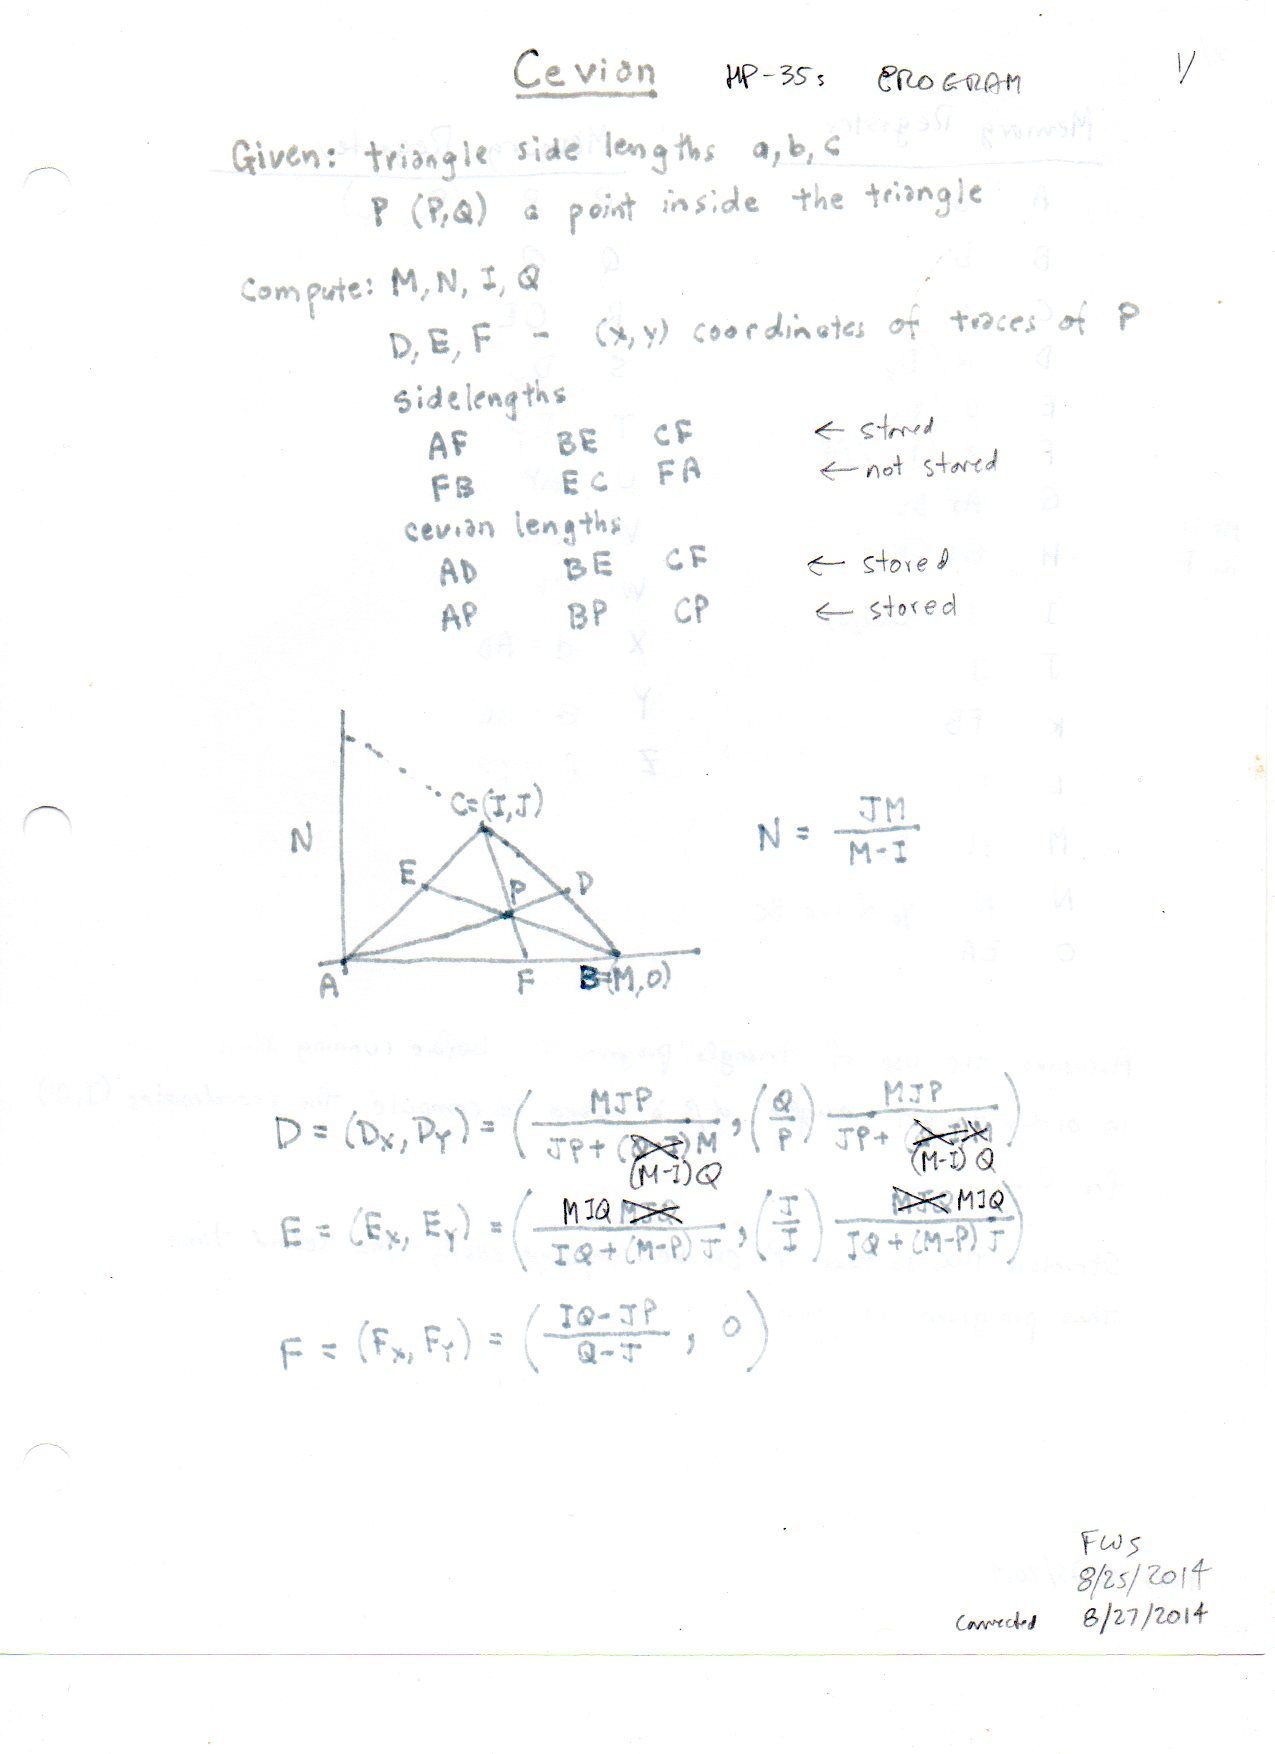 Cevian HP-35s PROGRAM 1/
Given: triangle side lengths a, b, c
P (P,Q) a point inside the triangle
Compute: M, N, I, Q
D, E, F - (x, y) coordinates of traces of P
sidelengths
AF BE CF ← stored
FB EC FA ← not stored
cevian lengths
AD BE CF ← stored
AP BP CP ← stored
C=(I,J)
N
N = JM / (M-I)
E P D
A F B=(M,0)
D = (Dx, Dy) = ( MJP / (JP + (M-I)Q) , (Q/P) MJP / (JP + (M-I)Q) )
E = (Ex, Ey) = ( MIQ / (IQ + (M-P)J) , (J/I) MIQ / (IQ + (M-P)J) )
F = (Fx, Fy) = ( (IQ-JP) / (Q-J) , 0 )
FWS
8/25/2014
Corrected 8/27/2014